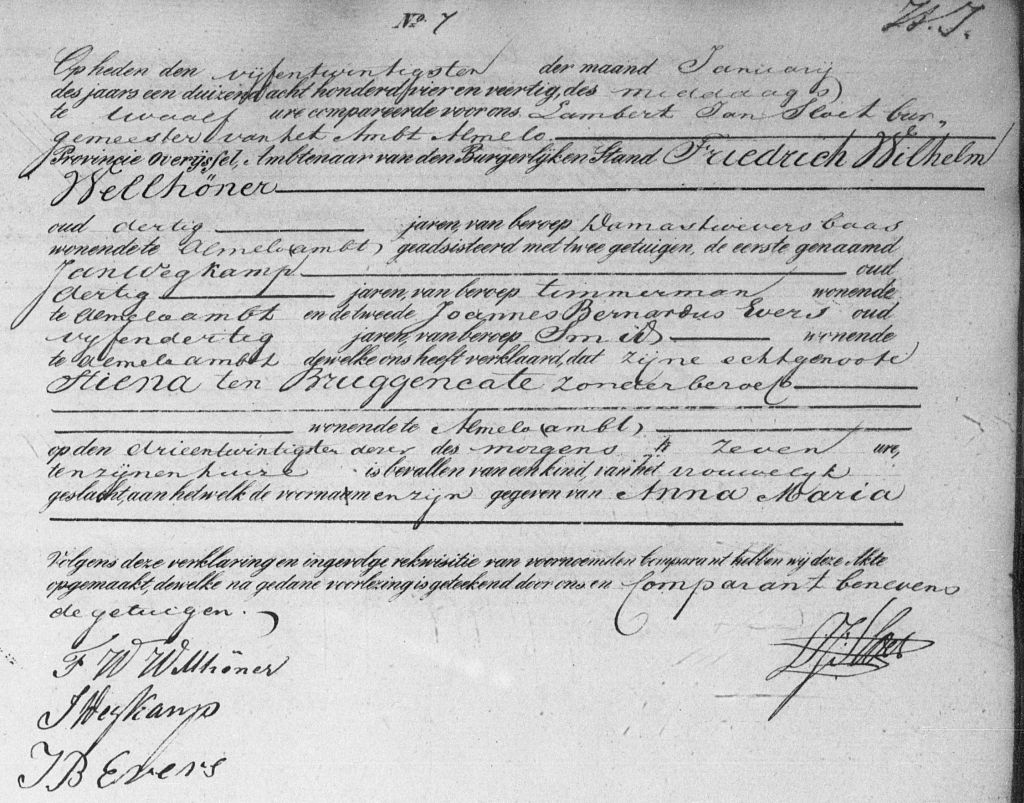 No. 7
Op heden den vijfentwintigsten der maand Januarij
des jaars een duizend acht honderd vier en veertig, des middags
te twaalf ure compareerde voor ons Lambert Jan Sloet bur-
gemeester van het Ambt Almelo
Provincie Overijssel, Ambtenaar van den Burgerlijken Stand Friedrich Wilhelm
Wellhöner
oud dertig jaren, van beroep Damastweversbaas
wonende te Almelo (ambt) geadsisteerd met twee getuigen, de eerste genaamd
Jan Wegkamp oud
dertig jaren, van beroep timmerman wonende
te Almelo ambt en de tweede Joannes Bernardus Evers oud
vijfendertig jaren, van beroep Smid wonende
te Almelo ambt dewelke ons heeft verklaard, dat zijne echtgenoote
Stiena ten Bruggencate zonder beroep
wonende te Almelo (ambt)
op den drieentwintigsten dezer des morgens te zeven ure,
ten zijnen huize is bevallen van een kind, van het vrouwelyk
geslacht, aan hetwelk de voornaamen zijn gegeven van Anna Maria
Volgens deze verklaring en ingevolge rekwisitie van voornoemden Comparant hebben wij deze Akte
opgemaakt, dewelke na gedane voorlezing is geteekend door ons en Comparant benevens
de getuigen.
F W Wellhöner
J Wegkamp
J B Evers